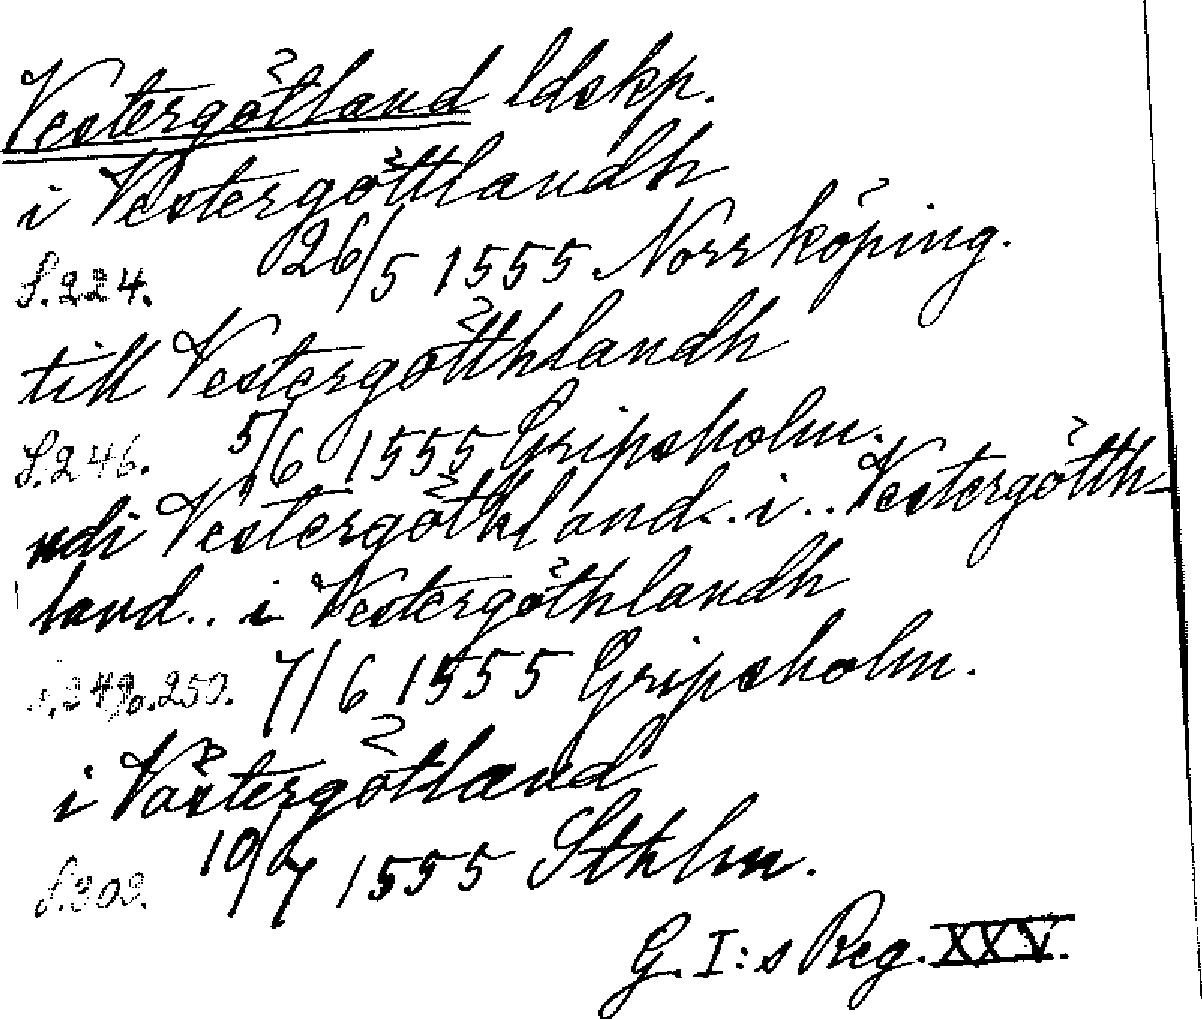 Vestergötland ldskp.
i Vestergöttlandh
S.224. 26/5 1555 Norrköping.
till Vestergötthlandh
S.246. 5/6 1555 Gripsholm.
udi Vestergöthland.. i.. Vestergötth-
land.. i Vestergöthlandh
s.249o.250. 7/6 1555 Gripsholm.
i Västergötland
S.309. 10/7 1555 Sthlm.
G. I:s Reg. XXV.